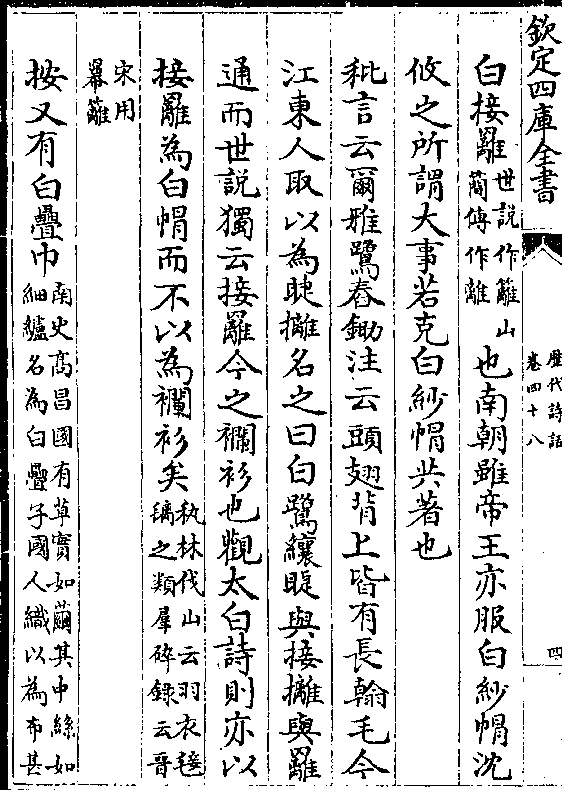 欽定四庫全書
歷代詩話
卷四十八
四
白接䍦世說作籬山簡傳作離也南朝雖帝王亦服白紗帽沈
攸之所謂大事若克白紗帽共著也
秕言云爾雅鷺舂鋤注云頭翅背上皆有長翰毛今
江東人取以為睫攡名之曰白鷺縗睫與接攡與䍦
通而世說獨云接䍦今之襴衫也觀太白詩則亦以
接䍦為白帽而不以為襴衫矣秇林伐山云羽衣毰
之類羣碎錄云晉
宋用
羃䍦
按又有白疊巾南史高昌國有草實如繭其中絲如
細纑名為白疊子國人織以為布甚